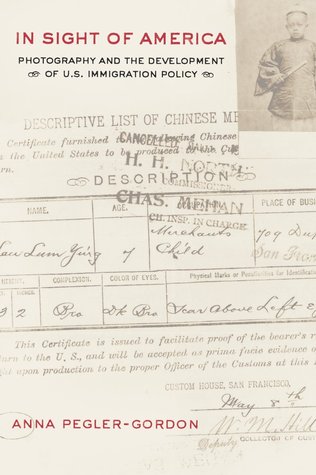 IN SIGHT OF AMERICA
PHOTOGRAPHY AND THE DEVELOPMENT
OF U.S. IMMIGRATION POLICY
DESCRIPTIVE LIST OF CHINESE ME
Certificate furnished to following Chinese
the United States to be produced to the
rn.
CANCELLED
H. H. NORTH
COMMISSIONER
DESCRIPTION
CHAS. MEHAN
CH. INSP. IN CHARGE
NAME. AGE. OCCUPATION PLACE OF BUSI
Lam Ying 7 Merchants Child 709 Du
San Fran
HEIGHT. COMPLEXION. COLOR OF EYES. Physical Marks or Peculiarities for Identification
INCHES.
9 2 Bro Dk Bro Scar Above Left E
This Certificate is issued to facilitate proof of the bearer's r
turn to the U. S., and will be accepted as prima facie evidence o
ght upon production to the proper Officer of the Customs at this
CUSTOM HOUSE, SAN FRANCISCO,
May 8th
Deputy COLLECTOR OF CUSTOMS
ANNA PEGLER-GORDON